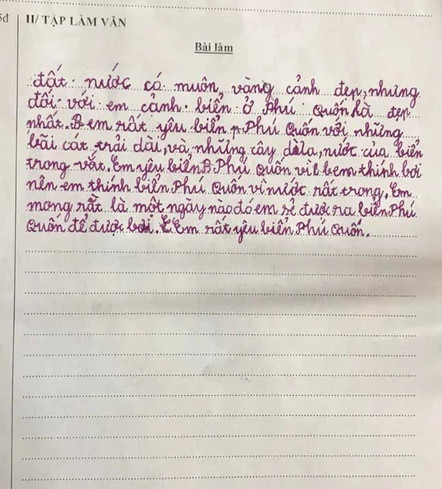 5đ
II/ TẬP LÀM VĂN
Bài làm
đất nước có muôn vàng cảnh đẹp, nhưng
đối với em cảnh biển ở Phú Quốn là đẹp
nhất. B em rất yêu biển p Phú Quốn với những
bãi cát trải dài, và những cây dừa, nước của biển
trong vắt. Em yêu biển B Phú Quốn vì b em thính bơi
nên em thính biển Phú Quôn vì nước rất trong. Em
mong rằt là một ngày nào đó em sẻ được ra biển Phú
Quôn để được bơi. E Em rất yêu biển Phú Quốn.